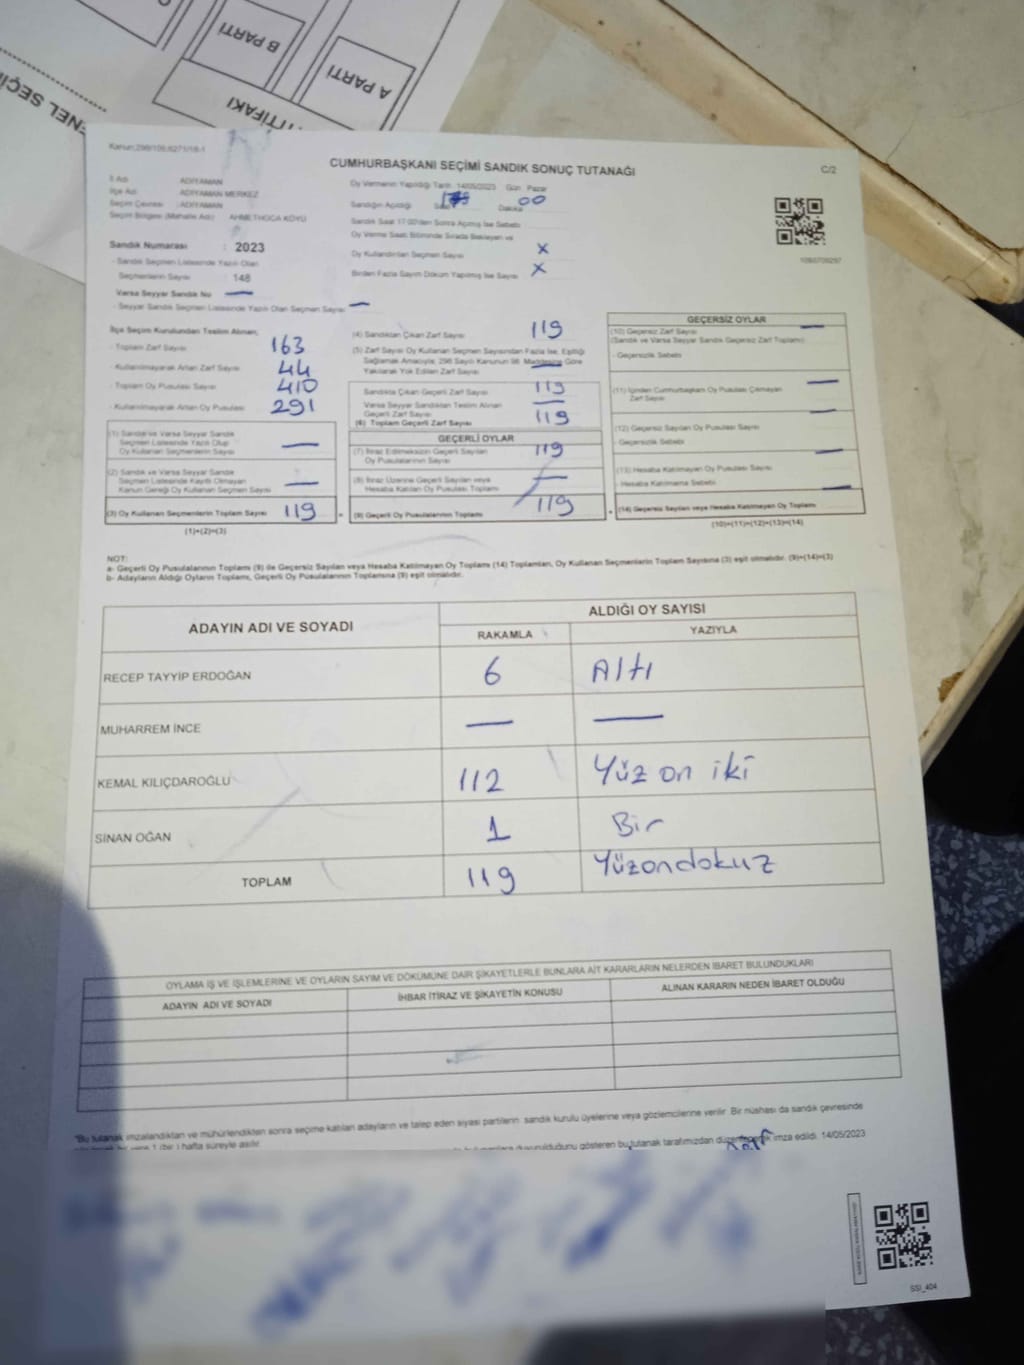 B PARTİ
A PARTİ
Kanun:298/105;6271/18-1
CUMHURBAŞKANI SEÇİMİ SANDIK SONUÇ TUTANAĞI
C/2
İl Adı ADIYAMAN
İlçe Adı ADIYAMAN MERKEZ
Seçim Çevresi : ADIYAMAN
Seçim Bölgesi (Mahalle Adı) AHMETHOCA KÖYÜ
Sandık Numarası : 2023
- Sandık Seçmen Listesinde Yazılı Olan
Seçmenlerin Sayısı : 148
Varsa Seyyar Sandık No —
- Seyyar Sandık Seçmen Listesinde Yazılı Olan Seçmen Sayısı —
Oy Vermenin Yapıldığı Tarih: 14/05/2023 Gün Pazar
Sandığın Açıldığı Dakika 00
Sandık Saat 17:00'den Sonra Açılmış İse Sebebi
Oy Verme Saati Bitiminde Sırada Bekleyen ve
Oy Kullandırılan Seçmen Sayısı X
Birden Fazla Sayım Döküm Yapılmış İse Sayısı X
İlçe Seçim Kurulundan Teslim Alınan;
- Toplam Zarf Sayısı 163
- Kullanılmayarak Artan Zarf Sayısı 44
- Toplam Oy Pusulası Sayısı 410
- Kullanılmayarak Artan Oy Pusulası 291
(1) Sandık ve Varsa Seyyar Sandık
Seçmen Listesinde Yazılı Olup
Oy Kullanan Seçmenlerin Sayısı —
(2) Sandık ve Varsa Seyyar Sandık
Seçmen Listesinde Kayıtlı Olmayan
Kanun Gereği Oy Kullanan Seçmen Sayısı —
(3) Oy Kullanan Seçmenlerin Toplam Sayısı 119
(1)+(2)=(3)
(4) Sandıktan Çıkan Zarf Sayısı 119
(5) Zarf Sayısı Oy Kullanan Seçmen Sayısından Fazla İse, Eşitliği
Sağlamak Amacıyla, 298 Sayılı Kanunun 98. Maddesine Göre
Yakılarak Yok Edilen Zarf Sayısı —
Sandıkta Çıkan Geçerli Zarf Sayısı 119
Varsa Seyyar Sandıktan Teslim Alınan
Geçerli Zarf Sayısı —
(6) Toplam Geçerli Zarf Sayısı 119
GEÇERLİ OYLAR
(7) İtiraz Edilmeksizin Geçerli Sayılan
Oy Pusulalarının Sayısı 119
(8) İtiraz Üzerine Geçerli Sayılan veya
Hesaba Katılan Oy Pusulası Toplamı —
(9) Geçerli Oy Pusulalarının Toplamı 119
GEÇERSİZ OYLAR
(10) Geçersiz Zarf Sayısı —
(Sandık ve Varsa Seyyar Sandık Geçersiz Zarf Toplamı)
- Geçersizlik Sebebi
(11) İçinden Cumhurbaşkanı Oy Pusulası Çıkmayan —
Zarf Sayısı
(12) Geçersiz Sayılan Oy Pusulası Sayısı —
- Geçersizlik Sebebi
(13) Hesaba Katılmayan Oy Pusulası Sayısı —
- Hesaba Katılmama Sebebi
(14) Geçersiz Sayılan veya Hesaba Katılmayan Oy Toplamı —
(10)+(11)+(12)+(13)=(14)
NOT:
a- Geçerli Oy Pusulalarının Toplamı (9) ile Geçersiz Sayılan veya Hesaba Katılmayan Oy Toplamı (14) Toplamları, Oy Kullanan Seçmenlerin Toplam Sayısına (3) eşit olmalıdır. (9)+(14)=(3)
b- Adayların Aldığı Oyların Toplamı, Geçerli Oy Pusulalarının Toplamına (9) eşit olmalıdır.
ADAYIN ADI VE SOYADI
ALDIĞI OY SAYISI
RAKAMLA YAZIYLA
RECEP TAYYİP ERDOĞAN 6 Altı
MUHARREM İNCE — —
KEMAL KILIÇDAROĞLU 112 Yüz on iki
SİNAN OĞAN 1 Bir
TOPLAM 119 Yüzondokuz
OYLAMA İŞ VE İŞLEMLERİNE VE OYLARIN SAYIM VE DÖKÜMÜNE DAİR ŞİKAYETLERLE BUNLARA AİT KARARLARIN NELERDEN İBARET BULUNDUKLARI
ADAYIN ADI VE SOYADI İHBAR İTİRAZ VE ŞİKAYETİN KONUSU ALINAN KARARIN NEDEN İBARET OLDUĞU
"Bu tutanak imzalandıktan ve mühürlendikten sonra seçime katılan adayların ve talep eden siyasi partilerin sandık kurulu üyelerine veya gözlemcilerine verilir. Bir nüshası da sandık çevresinde
duyurulduğunu gösteren bu tutanak tarafımızdan düzenlenerek imza edildi. 14/05/2023
SSI_404